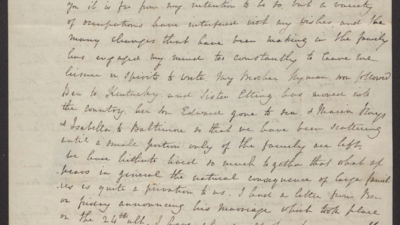 you it is far from my intention to do so, but a variety
of occupations have interfered with my wishes, and the
many changes that have been making in the family
has engaged my mind too constantly to leave me
leisure or spirits to write. My Brother Hyman soon followed
Ben to Kentucky and Sister Etting has moved into
the country, her son Edward gone to sea, & Maria
& Isabella to Baltimore so that we have been scattering
until a small portion only of the family are left.
We have hitherto lived so much together that what ap
pears in general the natural consequence of large famil
ies is quite a privation to us. I had a letter from Ben
on friday announcing his marriage which took place
on the 24th ult. I have